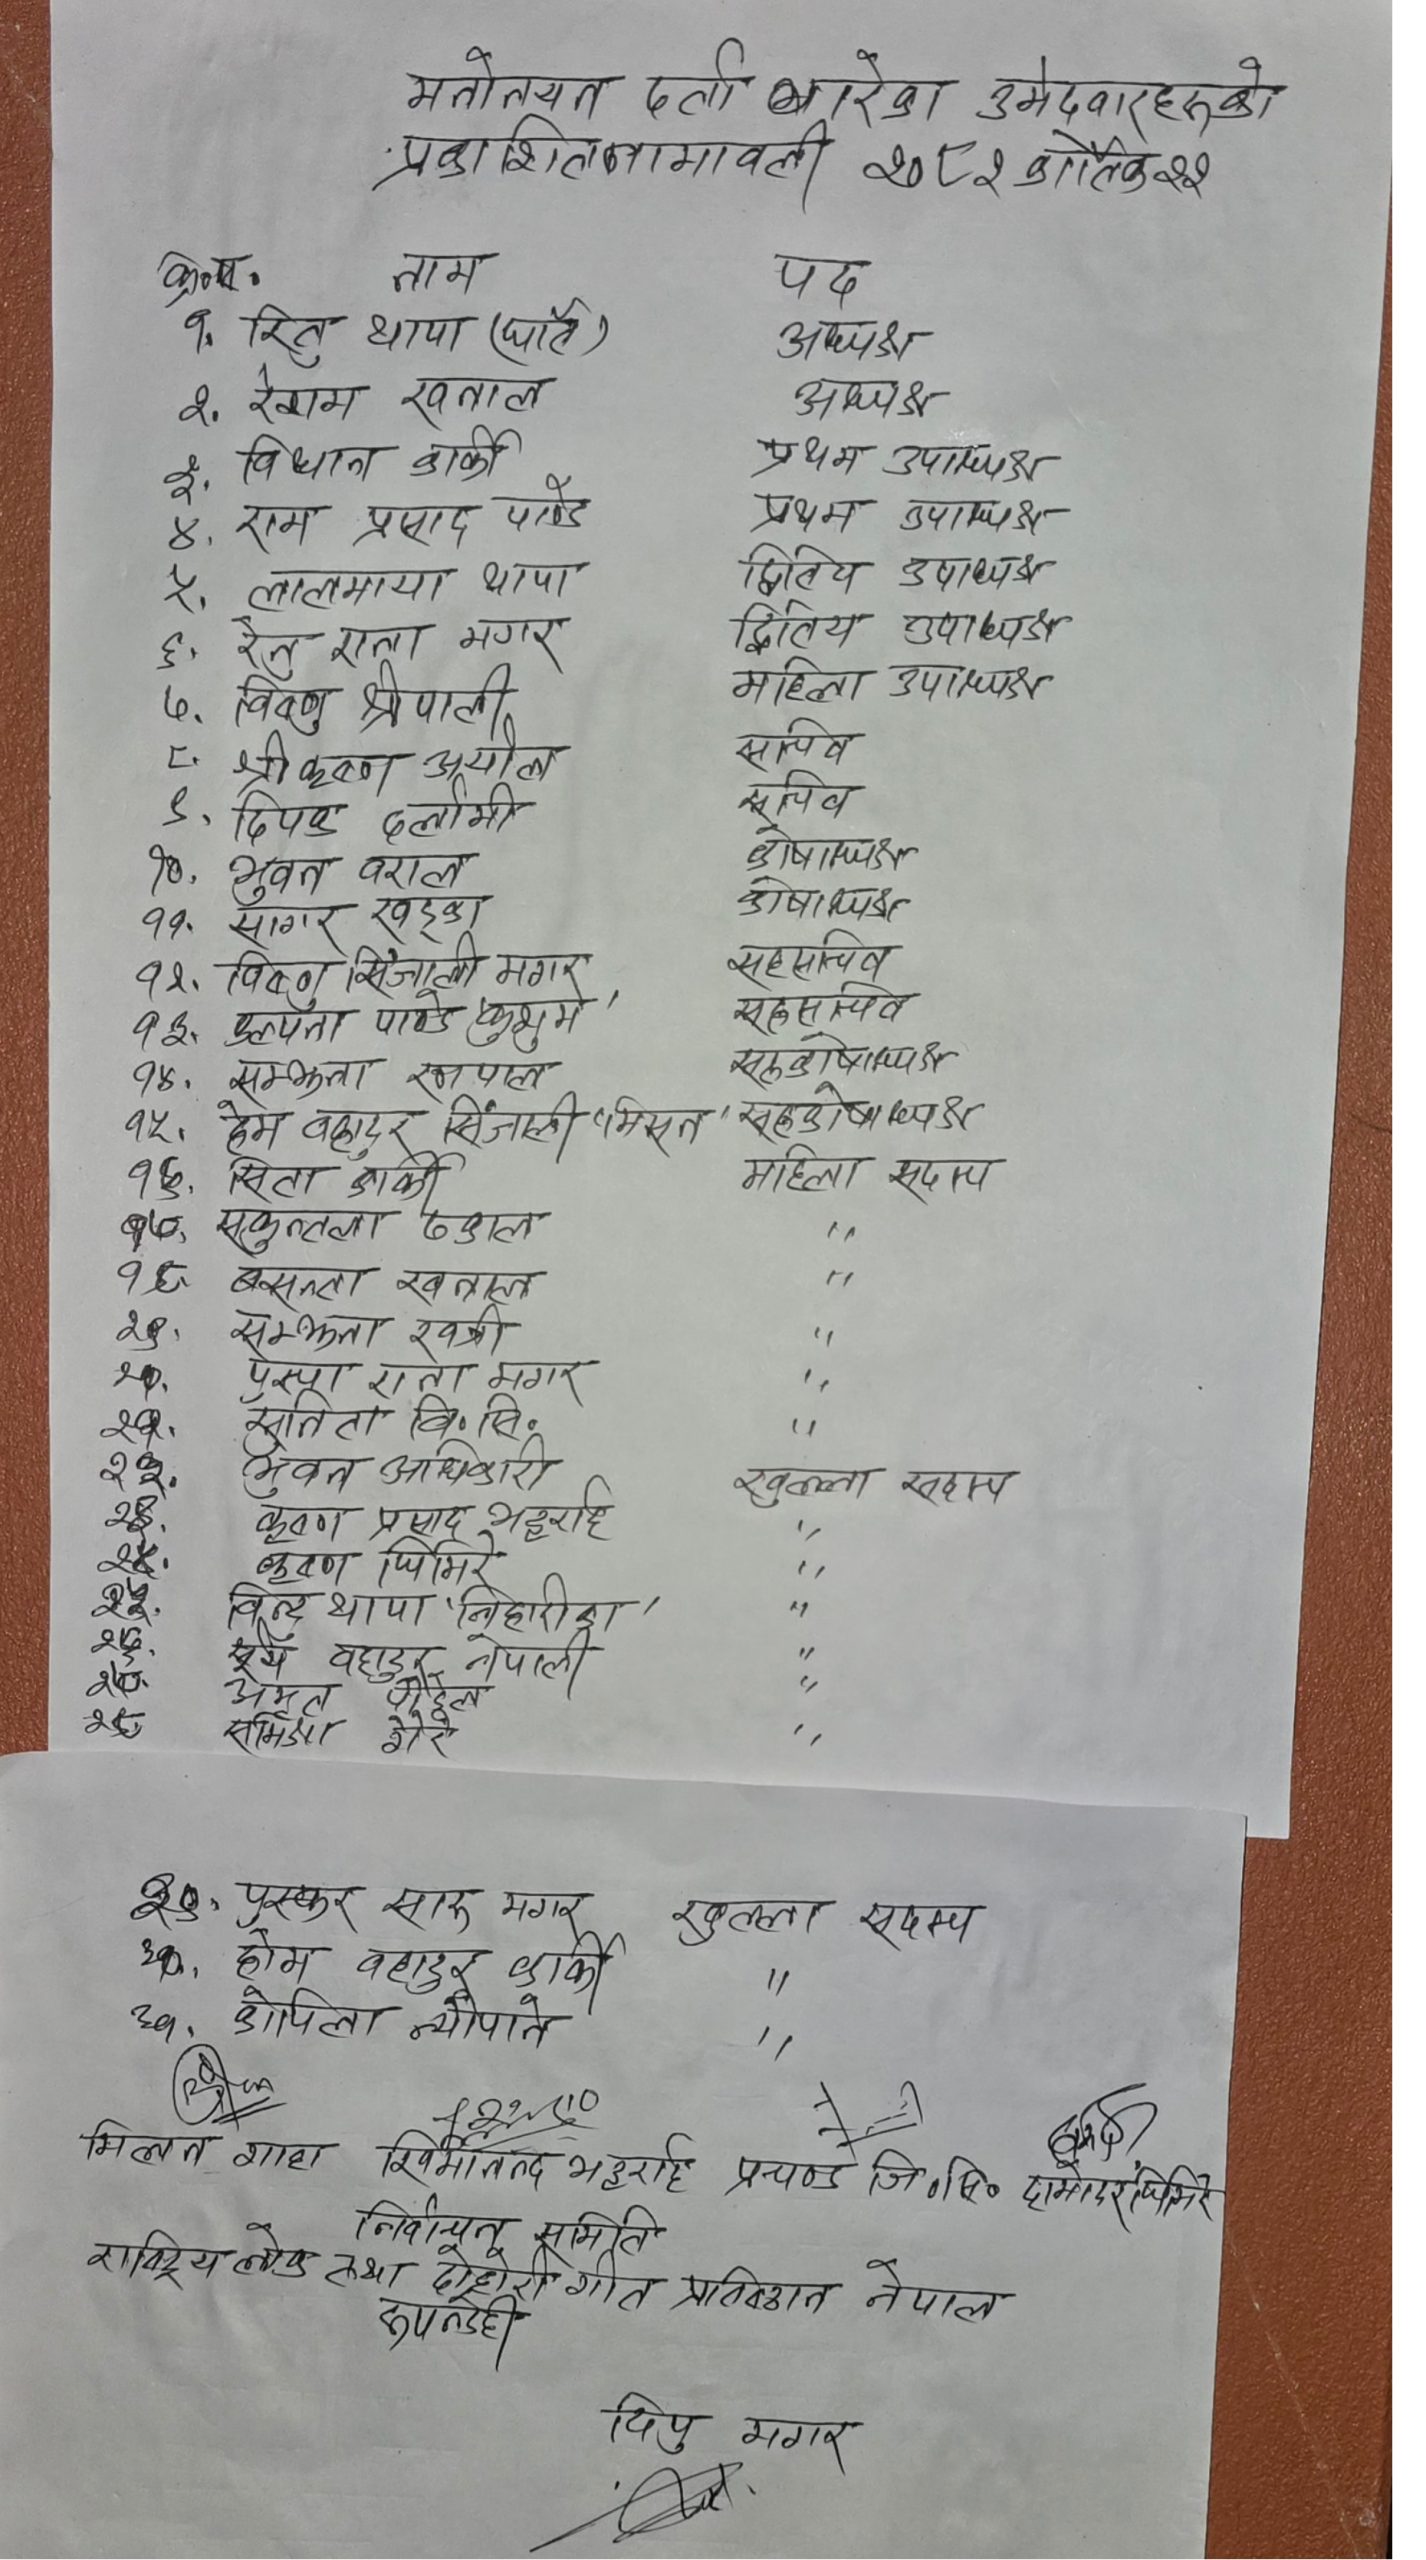 मनोनयन दर्ता भएका उमेदवारहरुको
प्रकाशित नामावली २०८२ कार्तिक २२
क्र.स. नाम पद
१. रितु थापा (घर्ति) अध्यक्ष
२. रेशम खनाल अध्यक्ष
३. विधान कार्की प्रथम उपाध्यक्ष
४. राम प्रसाद पाण्डे प्रथम उपाध्यक्ष
५. लालमाया थापा द्वितिय उपाध्यक्ष
६. रेनु राना मगर द्वितिय उपाध्यक्ष
७. विष्णु श्रीपाली महिला उपाध्यक्ष
८. श्रीकृष्ण अर्याल सचिव
९. दिपक दर्लामी सचिव
१०. भुवन वराल कोषाध्यक्ष
११. सागर खड्का कोषाध्यक्ष
१२. विष्णु सिंजाली मगर सहसचिव
१३. कल्पना पाण्डे 'कुसुम' सहसचिव
१४. सम्झना रानपाल सहकोषाध्यक्ष
१५. हेम बहादुर सिंजाली 'मिसन' सहकोषाध्यक्ष
१६. सिता कार्की महिला सदस्य
१७. सकुन्तला ढकाल "
१८. बसन्ता खनाल "
१९. सम्झना खत्री "
२०. पुस्पा राना मगर "
२१. सुनिता बि.सि. "
२२. भुवन अधिकारी खुल्ला सदस्य
२३. कृष्ण प्रसाद भट्टराई "
२४. कृष्ण घिमिरे "
२५. विन्दु थापा 'निहारीका' "
२६. सूर्य बहादुर नेपाली "
२७. अमृत पौडेल "
२८. समिक्षा "
२९. पुस्कर सारु मगर खुल्ला सदस्य
३०. होम बहादुर कार्की "
३१. कोपिला न्यौपाने "
मिलन शाहा खिमानन्द भट्टराई प्रचण्ड जि.सि. दामोदर घिमिरे
निर्वाचन समिति
राष्ट्रिय लोक तथा दोहोरी गीत प्रतिष्ठान नेपाल
रुपन्देही
दिपु मगर